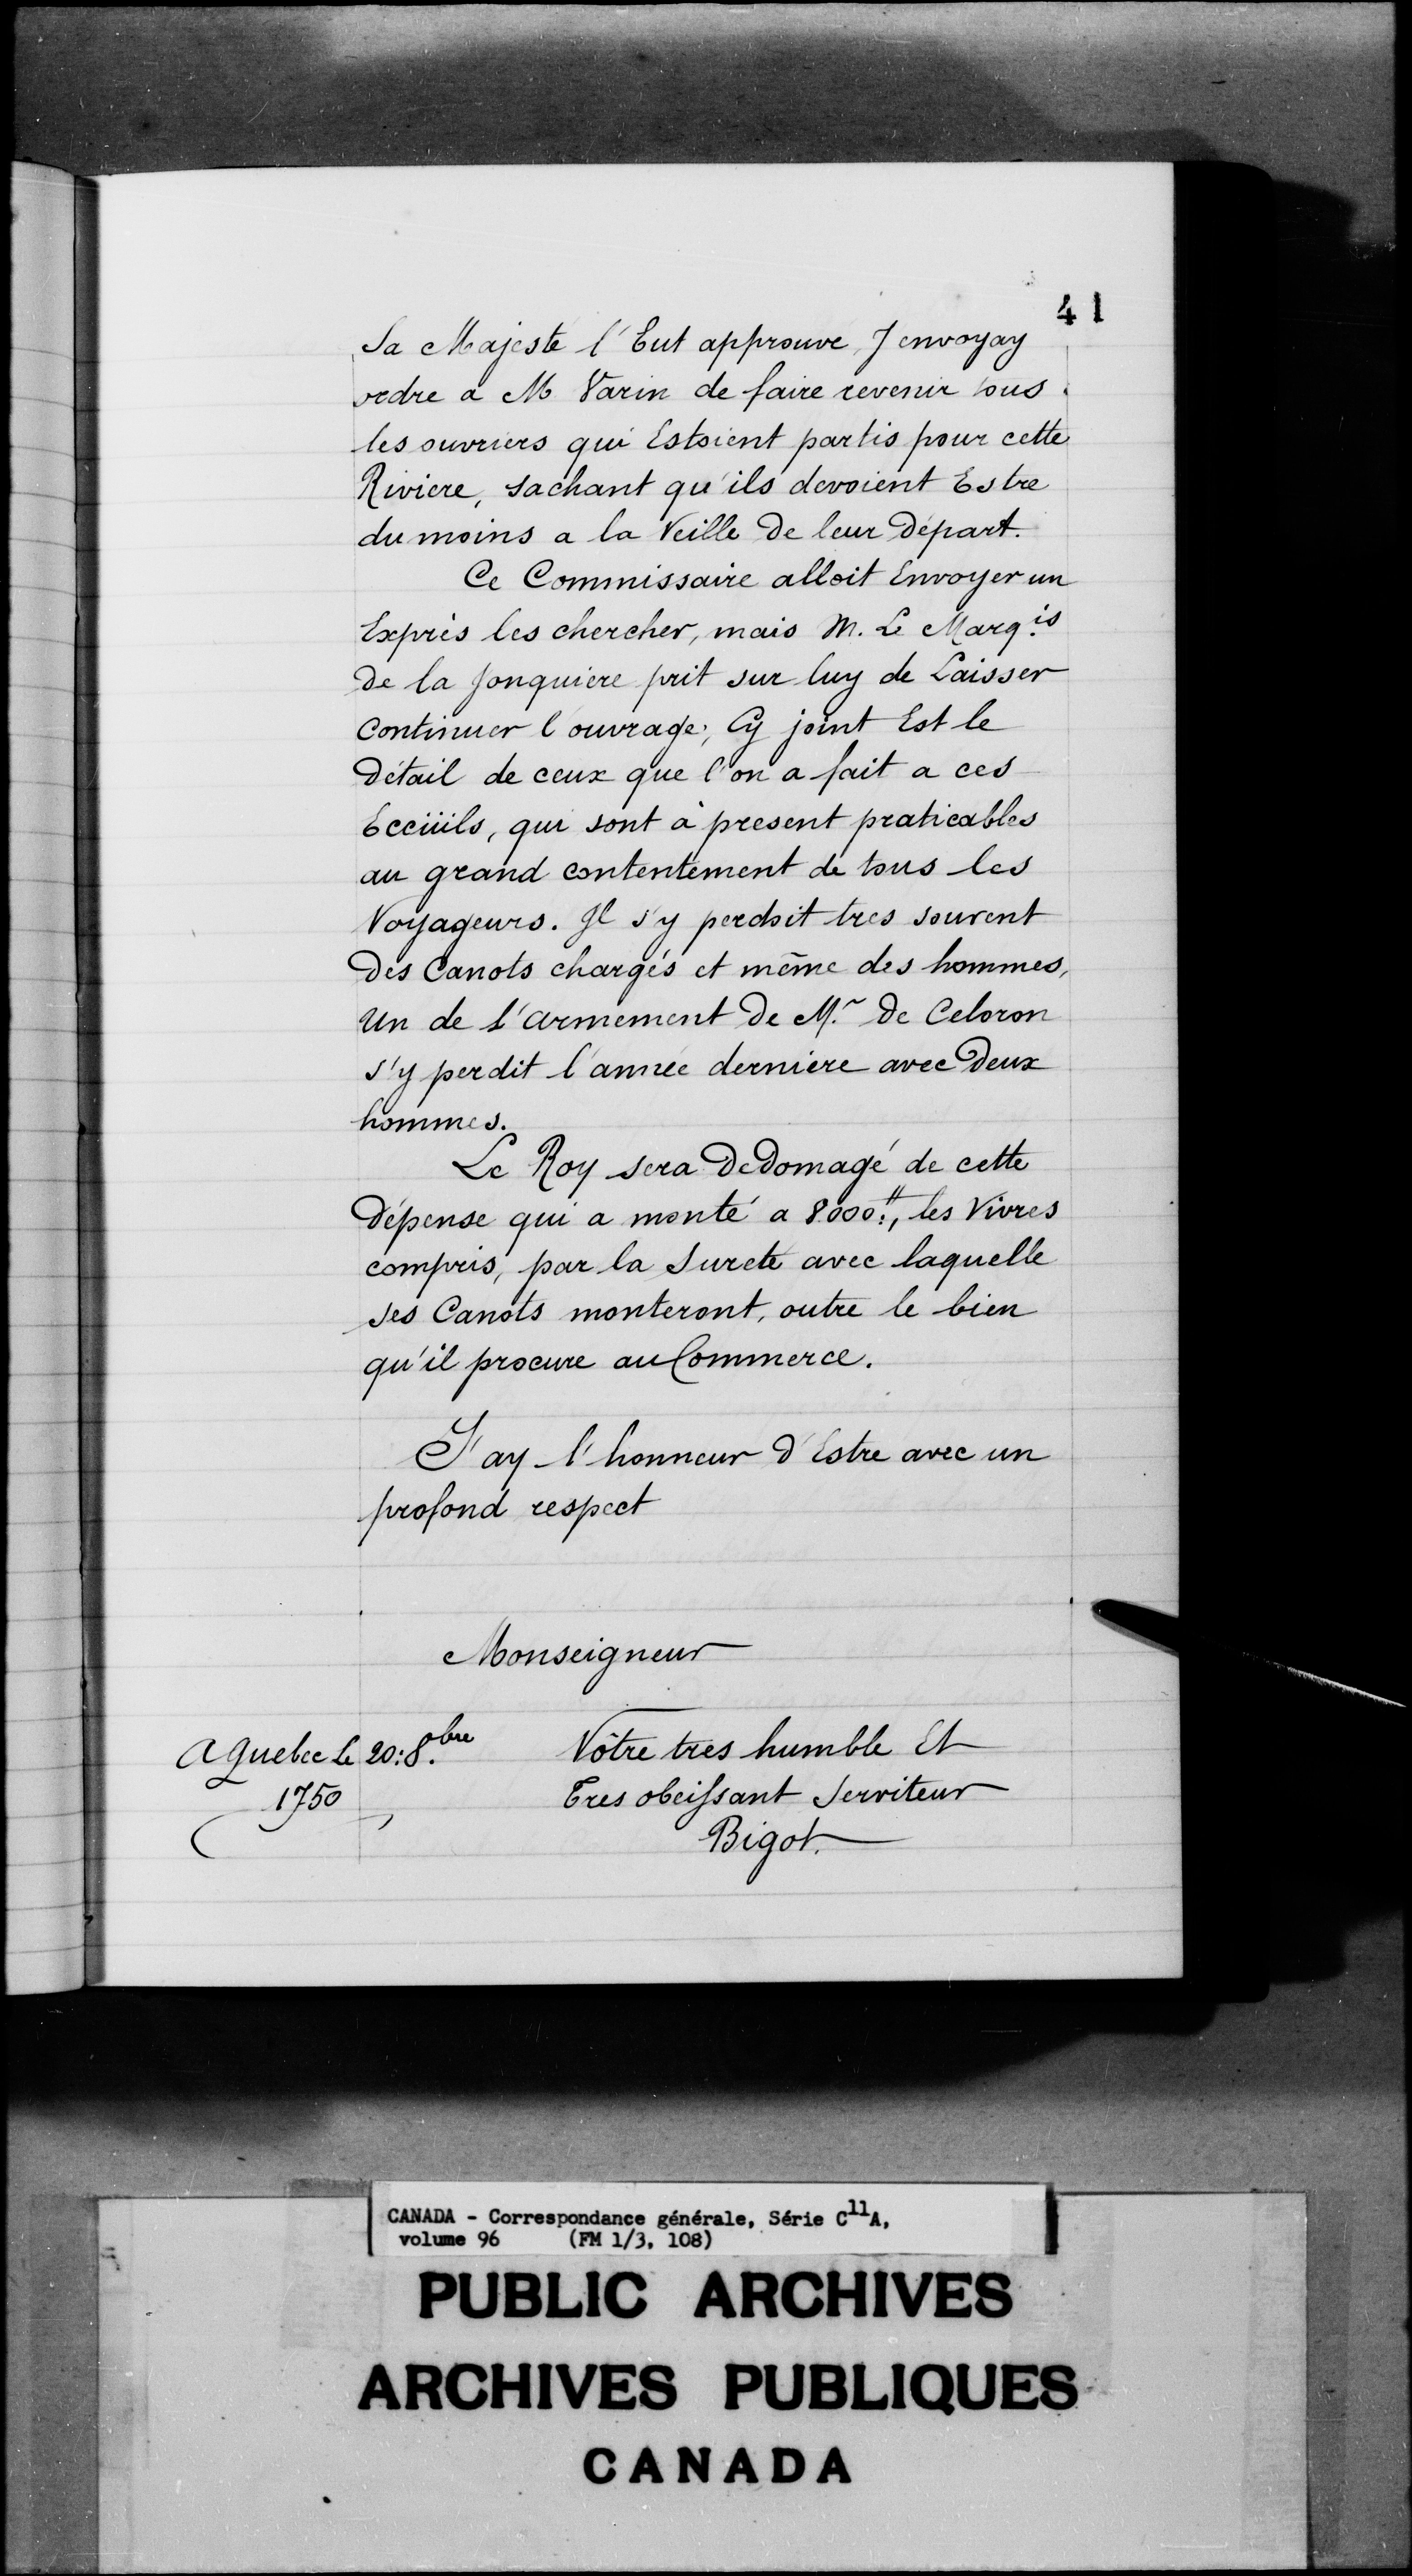 41
Sa Majesté l'Eut approuve, J envoyay
ordre a M Varin de faire revenir tous
les ouvriers qui Estoient partis pour cette
Riviere, sachant qu'ils devoient Estre
du moins a la Veille De leur Départ.
Ce Commissaire alloit Envoyer un
Exprès les chercher, mais M. Le Marq.is
De la Jonquiere prit sur luy de Laisser
Continuer l'ouvrage; Cy joint Est le
Détail de ceux que l'on a fait a ces
Ecciiils, qui sont à present praticables
au grand contentement de tous les
Voyageurs. Il s'y perdoit tres souvent
Des Canots chargés et même des hommes,
Un de l'armement De M.r De Celoron
s'y perdit l'année derniere avec Deux
hommes.
Le Roy sera DeDomagé de cette
Dépense qui a monté a 8000.#, les Vivres
compris, par la Sureté avec laquelle
ses Canots monteront, outre le bien
qu'il procure au Commerce.
J'ay l'honneur d'Estre avec un
profond respect
Monseigneur
A Quebec Le 20: 8.obre
1750
Vôtre tres humble Et
Tres obeissant Serviteur
Bigot.
CANADA - Correspondance générale, Série C11A,
volume 96 (FM 1/3, 108)
PUBLIC ARCHIVES
ARCHIVES PUBLIQUES
CANADA